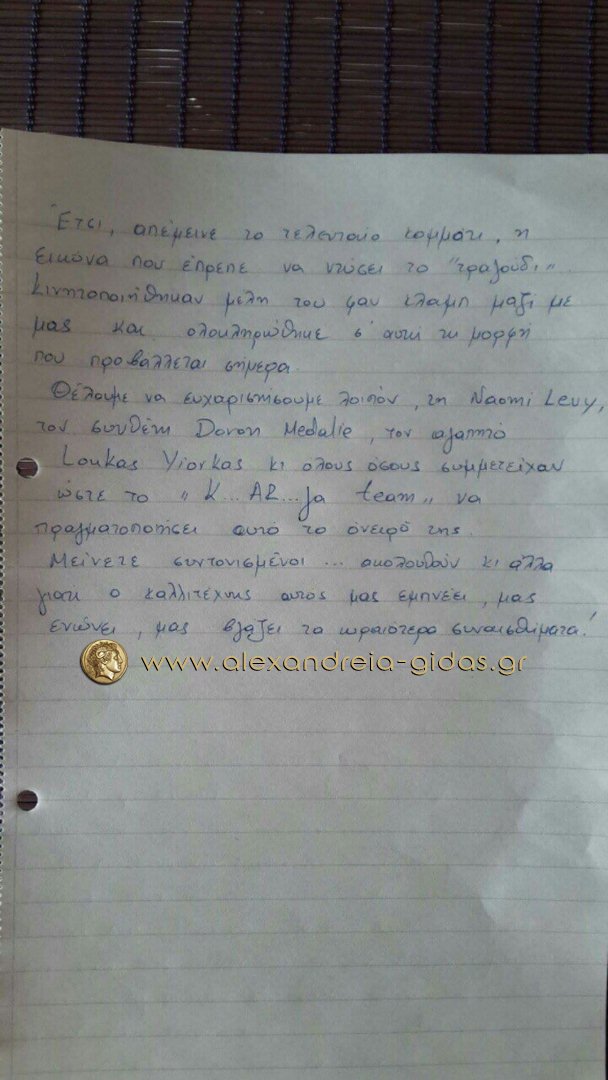 Έτσι, απέμεινε το τελευταίο κομμάτι, η
εικόνα που έπρεπε να ντύσει το "τραγούδι".
Κινητοποιήθηκαν μέλη του φαν κλαμπ μαζί με
μας και ολοκληρώθηκε σ' αυτή τη μορφή
που προβάλλεται σήμερα.
Θέλουμε να ευχαριστήσουμε λοιπόν, τη Naomi Levy,
τον συνθέτη Doron Medalie, τον αγαπητό
Loukas Yiorkas κι όλους όσους συμμετείχαν
ώστε το "K...AR...ja team" να
πραγματοποιήσει αυτό το όνειρό της.
Μείνετε συντονισμένοι... ακολουθούν κι άλλα
γιατί ο καλλιτέχνης αυτός μας εμπνέει, μας
ενώνει, μας βγάζει τα ωραιότερα συναισθήματα!
www.alexandreia-gidas.gr